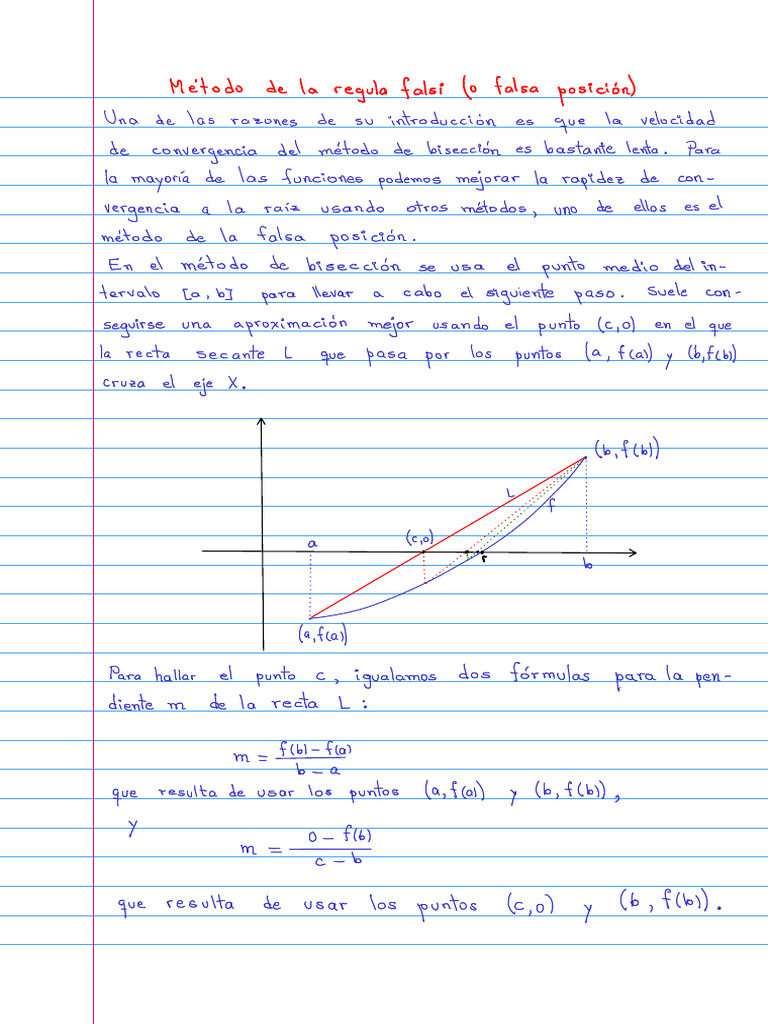 Método de la regula falsi (o falsa posición)
Una de las razones de su introducción es que la velocidad
de convergencia del método de bisección es bastante lenta. Para
la mayoría de las funciones podemos mejorar la rapidez de con-
vergencia a la raíz usando otros métodos, uno de ellos es el
método de la falsa posición.
En el método de bisección se usa el punto medio del in-
tervalo [a, b] para llevar a cabo el siguiente paso. Suele con-
seguirse una aproximación mejor usando el punto (c,0) en el que
la recta secante L que pasa por los puntos (a, f(a)) y (b, f(b))
cruza el eje X.
(b, f(b))
L
f
(c,0)
a
r
b
(a, f(a))
Para hallar el punto c, igualamos dos fórmulas para la pen-
diente m de la recta L:
m = f(b) - f(a) / b - a
que resulta de usar los puntos (a, f(a)) y (b, f(b)),
y
m = 0 - f(b) / c - b
que resulta de usar los puntos (c,0) y (b, f(b)).